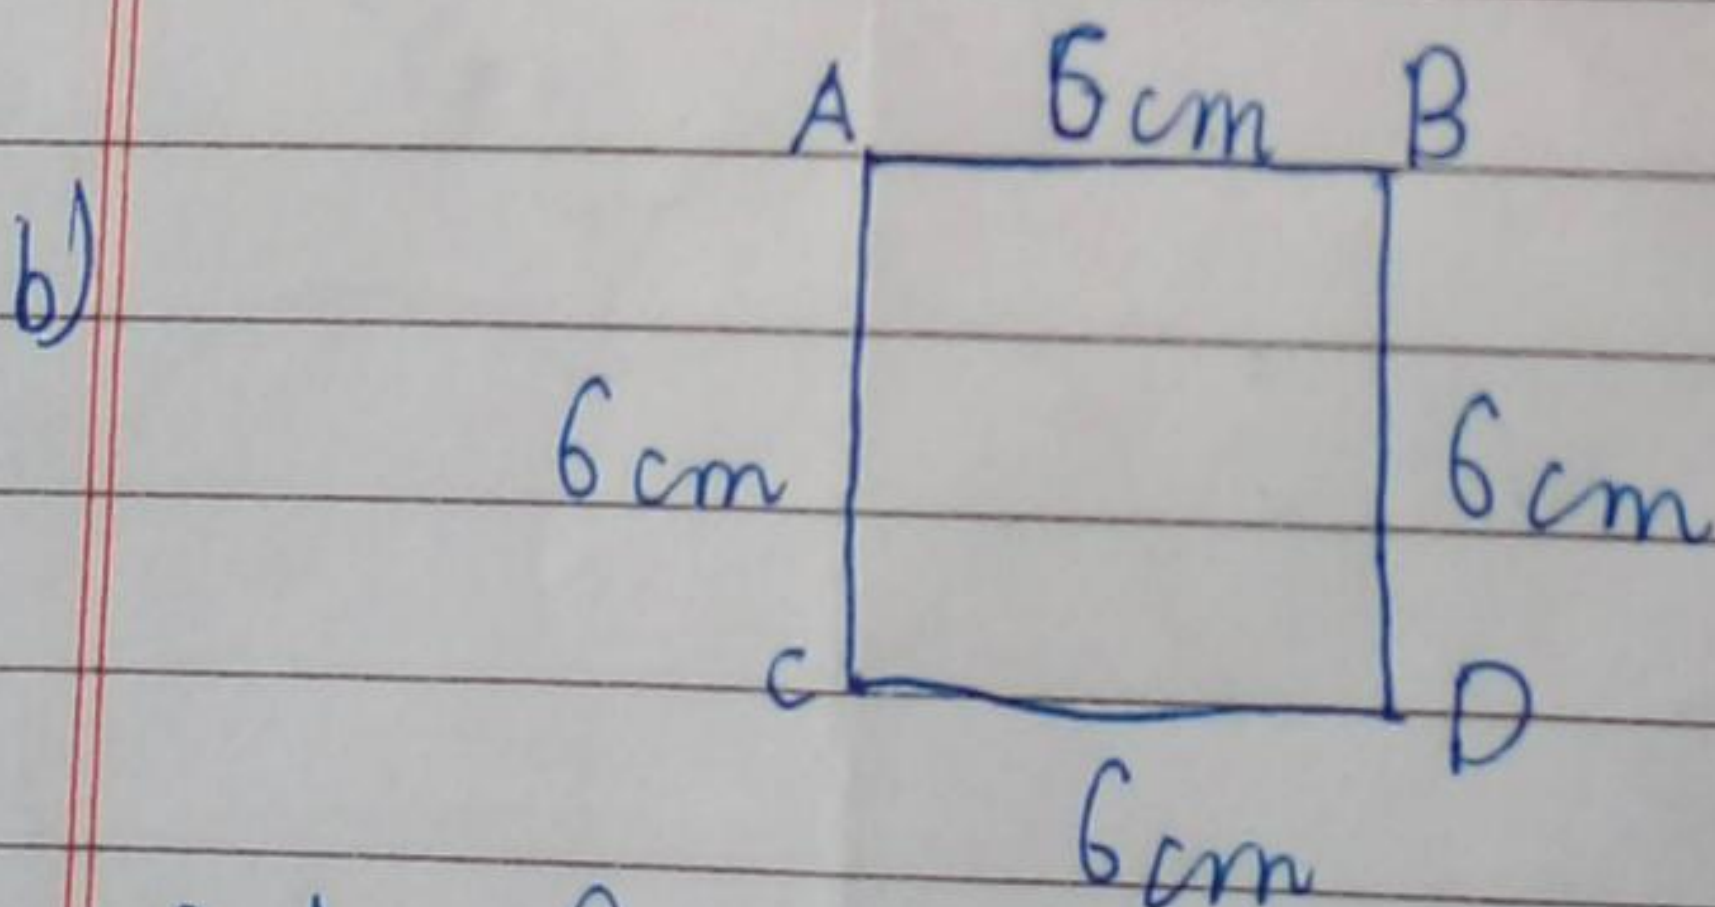 A 6cm B
b)
6cm 6cm
C D
6cm